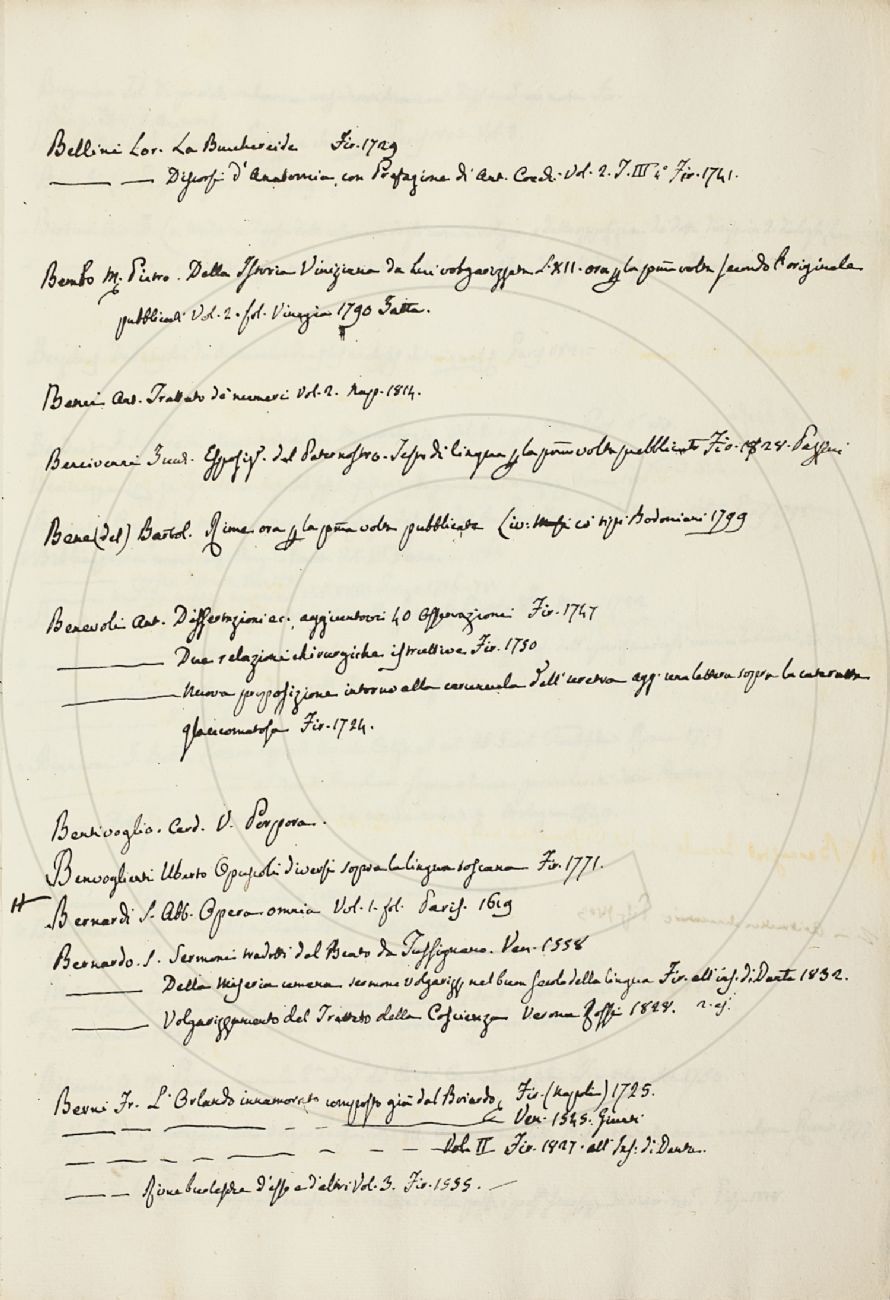 Bellini Lor. La Bucchereide Fir. 1729
—— — Discorsi d'Anatomia, con Prefazione di Ant. Cocchi Vol. 2. T. III 4° Fir. 1741.
Bembo M. Pietro. Della Istoria Viniziana da lui volgarizzata L. XII. ora p la pma volta secondo l'originale
pubblicati Vol. 2. fol. Vinegia 1790 Zatta.
Benci Ant. Trattato de' numeri Vol. 2. Nap. 1814.
Bencivenni Zucc. Esposiz. del Paternostro. Testo di lingua p la pma volta pubblicato Fir. 1828. Pezzini
Bene (del) Bartol. Rime ora p la pma volta pubblicate Liv. co' tipi Bodoniani 1799
Benevoli Ant. Dissertazioni ec. aggiuntovi 40 Osservazioni Fir. 1747
——— Due relazioni chirurgiche istruttive Fir. 1750
——— Nuova proposizione intorno alla caruncula dell'uretra agg. una lettera sopra la cateratta
glaucomatosa Fir. 1724.
Bentivoglio. Card. V. Porpora.
Benvoglienti Uberto Opuscoli diversi sopra la lingua toscana Fir. 1771.
Bernardi S. Abb. Opera omnia Vol. 1. fol. Paris. 1619
Bernardo. S. Sermoni tradotti dal Beato da Tussignano. Ven. 1558
——— Della Miseria umana sermone volgarizz. nel buon secolo della lingua Fir. all'ins. di Dante 1832.
——— Volgarizzamento del Trattato della Coscienza Verona Rossi 1828. 2. es.
Berni Fr. L'Orlando innamorato composto già dal Boiardo, Fir. (Napoli) 1725.
—— — —— - - ——— Ven. 1545. Giunti
— — — — —— - - — Vol. II Fir. 1827. all'Ins. di Dante.
—— — Rime burlesche d'esso e d'altri Vol. 3. Fir. 1555. —